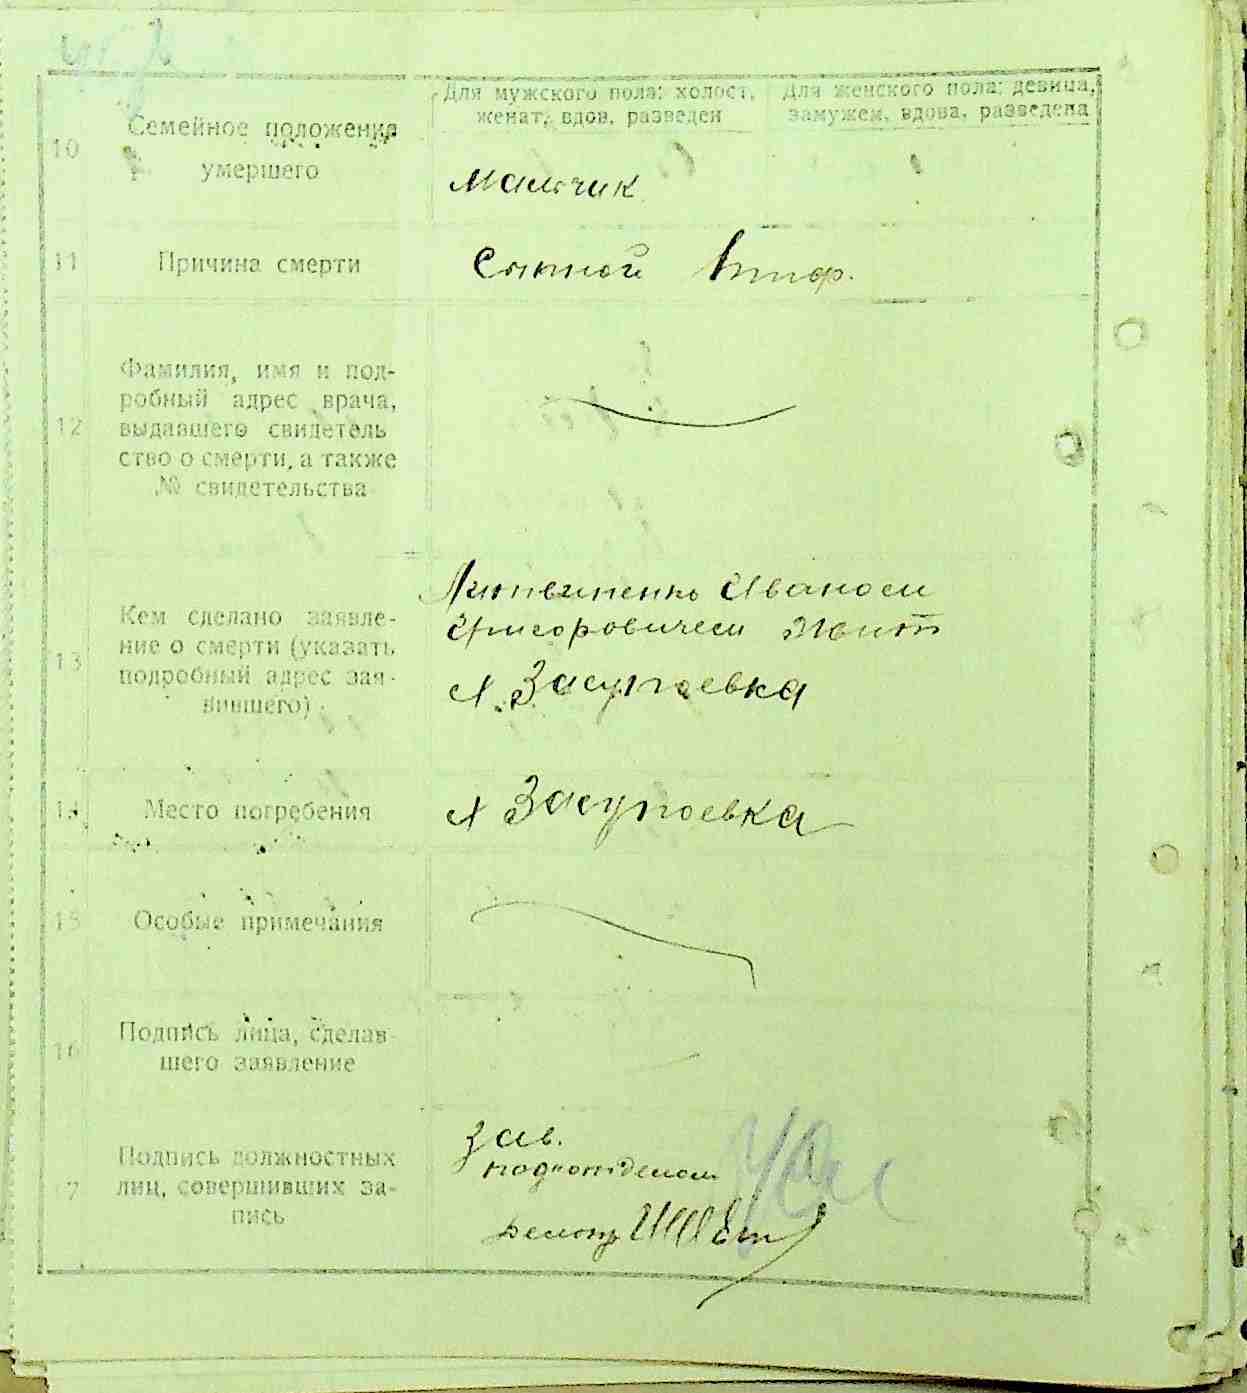 Для мужского пола: холост,
женат, вдов, разведен
Для женского пола: девица,
замужем, вдова, разведена
10
Семейное положение
умершего
Мальчик
11
Причина смерти
Сыпной тиф.
12
Фамилия, имя и под-
робный адрес врача,
выдавшего свидетель
ство о смерти, а также
№ свидетельства
13
Кем сделано заявле-
ние о смерти (указать
подробный адрес зая-
вившего)
Литвиненко Иваном
Григоровичем
с. Засупоевка
14
Место погребения
с Засупоевка
15
Особые примечания
16
Подпись лица, сделав-
шего заявление
17
Подпись должностных
лиц, совершивших за-
пись
Зав.
подотделом
Делопр